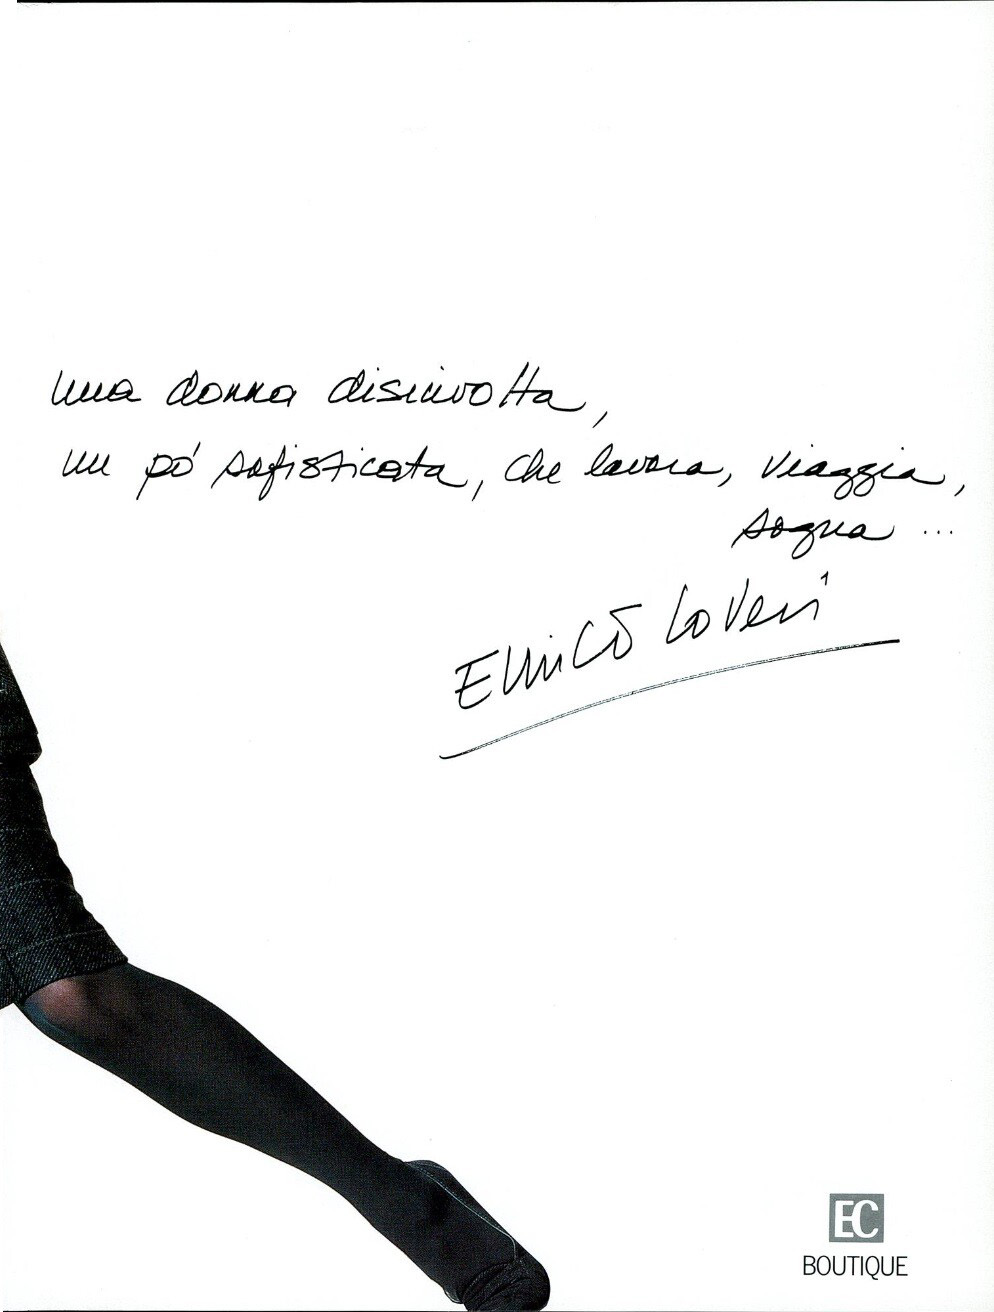 una donna disinvolta,
un pó sofisticata, che lavora, viaggia,
sogna ...
Enrico Coveri
EC
BOUTIQUE